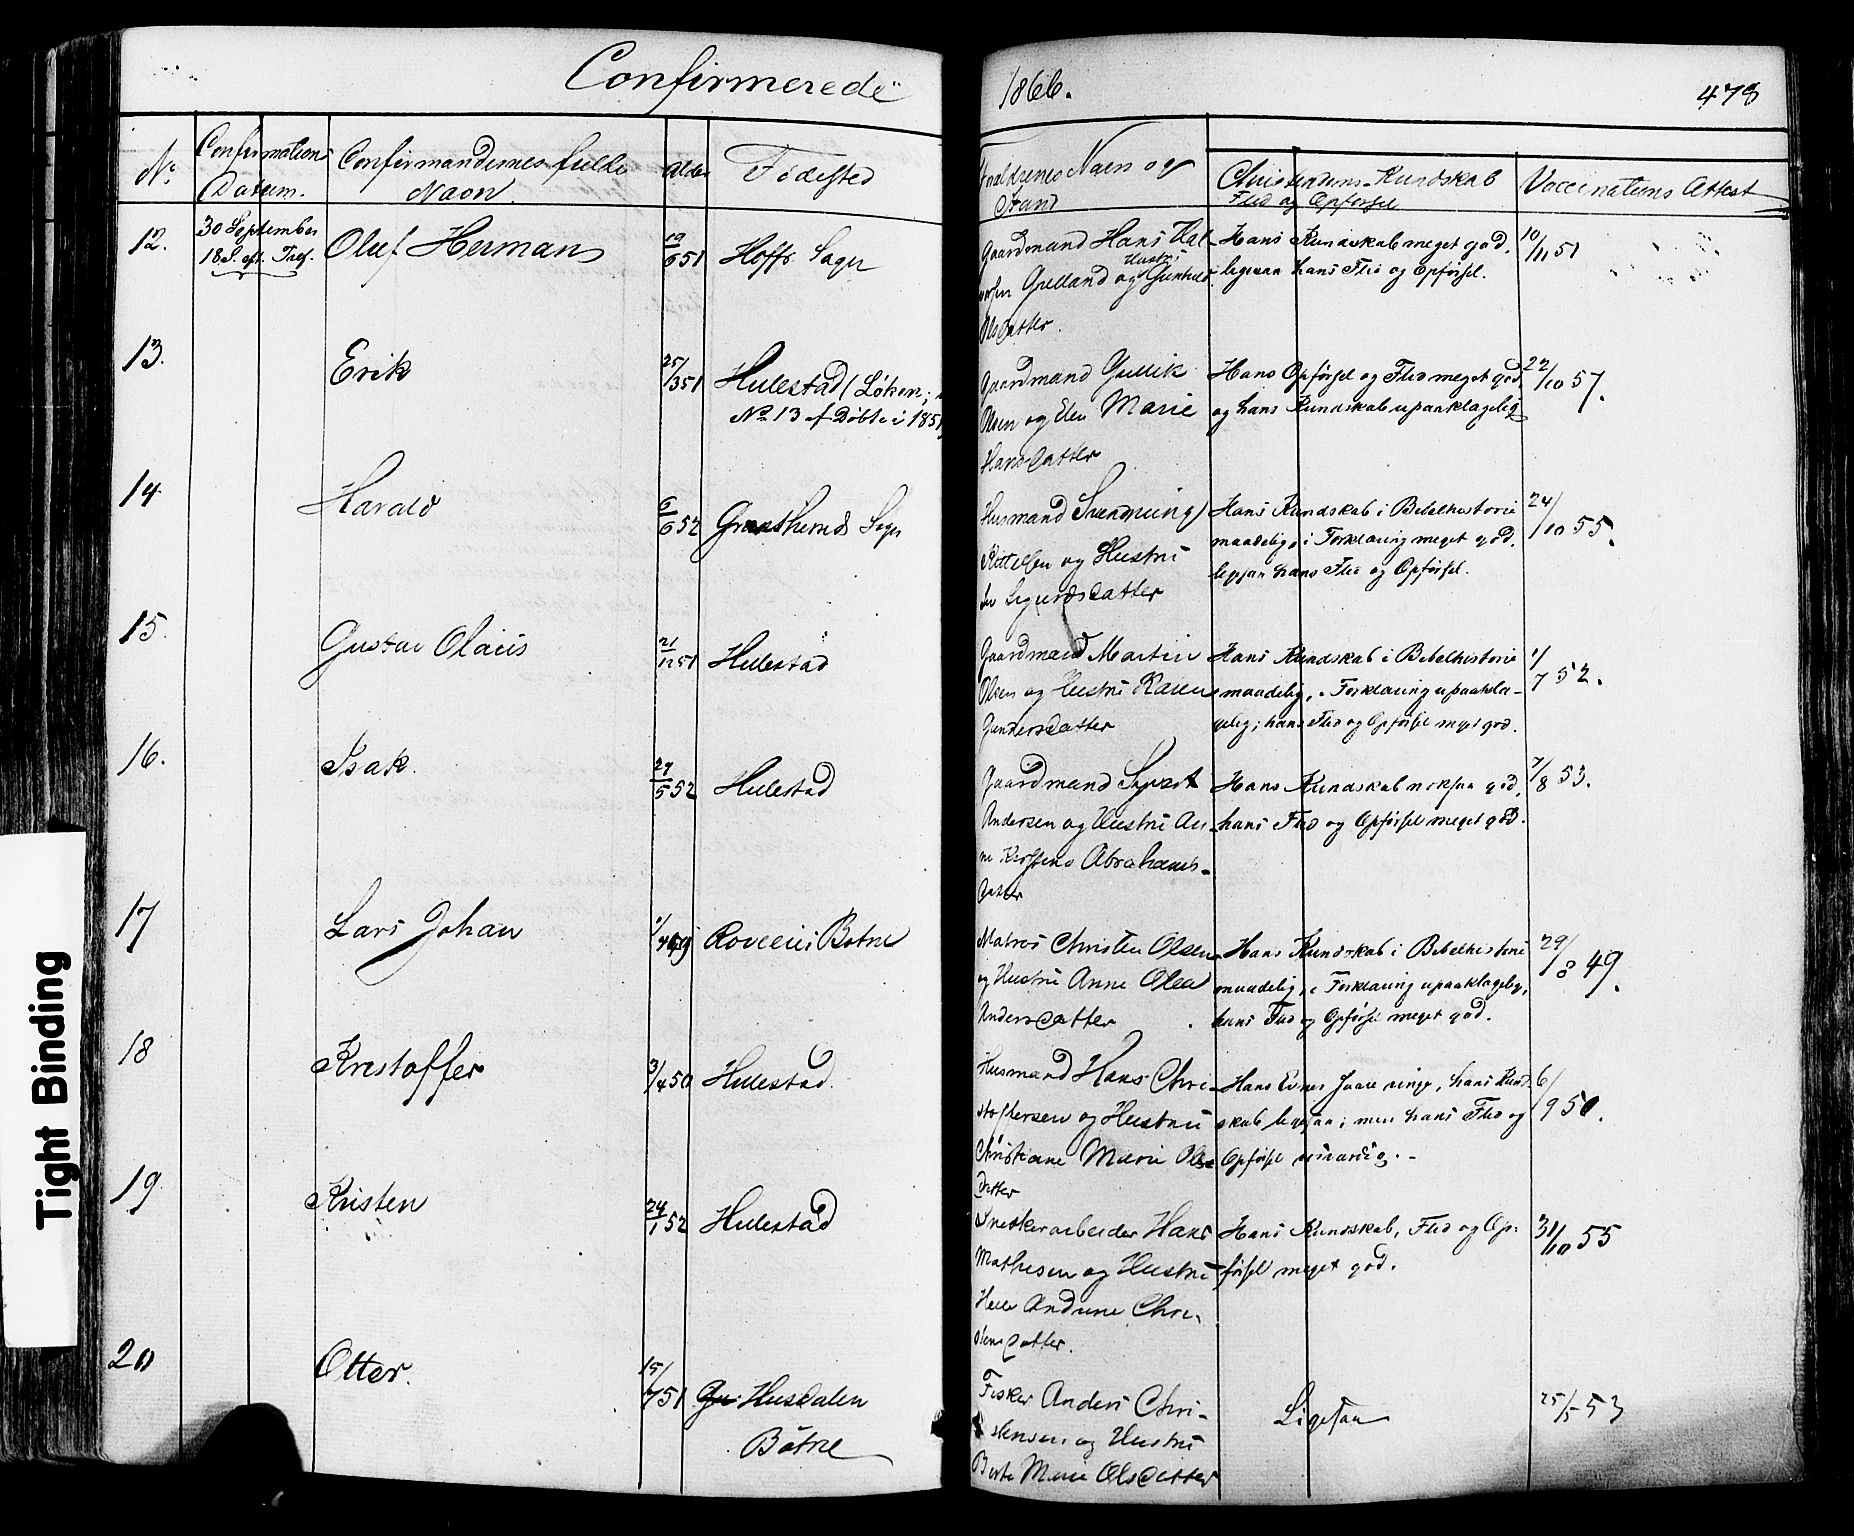 Confirmerede
1866.
478
No
Confirmations
Datum.
Confirmandernes fulde
Navn.
Alder
Fødested
Forældrenes Navn og
Stand
Christendoms-Kundskab
Flid og Opførsel
Vaccinations Attest
12.
30 September
18. S. eft. Tref.
Oluf Herman
19/6 51
Hoffs Sogn
Gaardmand Hans Hal-
vorsen Grelland og Hustru Gunhild
Olsdatter.
Hans Kundskab meget god.
ligesaa hans Flid og Opførsel.
10/11 51
13.
Erik
25/3 51
Hillestad (Løken;
No 13 af Døbte i 1851)
Gaardmand Gullik
Olsen og Elen Marie
Hansdatter
Hans Opførsel og Flid meget god,
og hans Kundskab upaaklagelig
22/10 57.
14
Harald
6/6 52
Sogn
Husmand Svenning
Kittelsen og Hustru
Sigurdsdatter
Hans Kundskab i Bibelhistorie
maadelig, i Forklaring meget god.
ligesaa hans Flid og Opførsel.
24/10 55.
15.
Gustav Olaus
21/12 51
Hillestad
Gaardmand Martin
Olsen og Hustru Karen
Gundersdatter
Hans Kundskab i Bibelhistorie
maadelig, i Forklaring upaakla-
gelig; hans Flid og Opførsel meget god.
1/7 52.
16.
Isak.
29/5 52
Hillestad
Gaardmand Syvert
Andersen og Hustru An-
ne Kirstine Abrahams-
datter
Hans Kundskab noksaa god,
hans Flid og Opførsel meget god.
7/8 53.
17
Lars Johan
49
Botne
Matros Christen Olsen
og Hustru Anne Olea
Andersdatter
Hans Kundskab i Bibelhistorie
maadelig, i Forklaring upaaklagelig,
hans Flid og Opførsel meget god.
29/8 49.
18
Kristoffer
3/4 50
Hillestad.
Husmand Hans Chri-
stoffersen og Hustru
Christiane Marie Ols-
datter
Hans Evner svare ringe, hans Kund-
skab ligesaa; men hans Flid og
Opførsel
6/9 50.
19
Kristen
24/1 52
Hillestad
Snekkerarbeider Hans
Mathisen og Hustru
Helle Andrine Chri-
stensdatter.
Hans Kundskab, Flid og Op-
førsel meget god.
31/10 55
20
Otter.
15/7 51
Husdalen
Botne
Fisker Anders Chri-
stensen og Hustru
Berte Marie Olsdatter
Ligesaa
25/5 53
Tight Binding